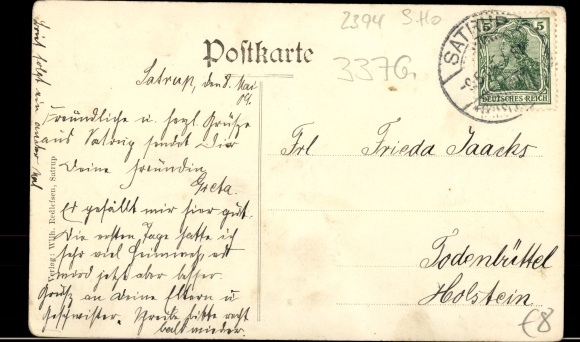 2394 S.Ho
Postkarte
3376
SATRUP
5 5
DEUTSCHES REICH
Satrup, den 8. Mai
09.
Freundliche u. herzl. Grüße
aus Satrup sendet Dir
Deine Freundin
Greta.
Es gefällt mir hier gut.
Die ersten Tage hatte ich
sehr viel Heimweh, es
wird jetzt aber besser.
Grüße an Deine Eltern u.
Geschwister. Schreibe bitte recht
bald wieder.
Brief folgt ein ander Mal
Verlag: Wilh. Redlefsen, Satrup
Frl Frieda Jaacks
Todenbüttel
Holstein
€8